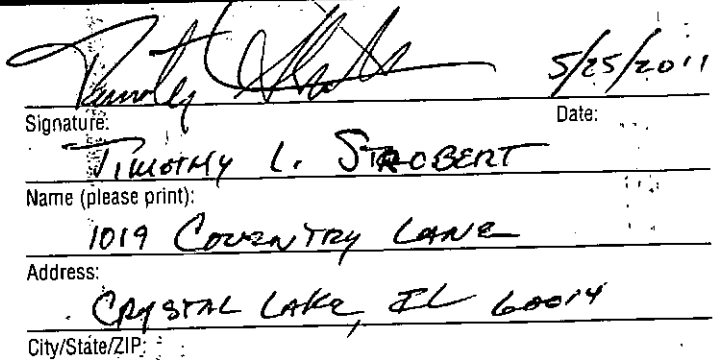 Timothy 5/25/2011
Signature: Date:
TIMOTHY L. STROBERT
Name (please print):
1019 COVENTRY LANE
Address:
CRYSTAL LAKE, IL 60014
City/State/ZIP: